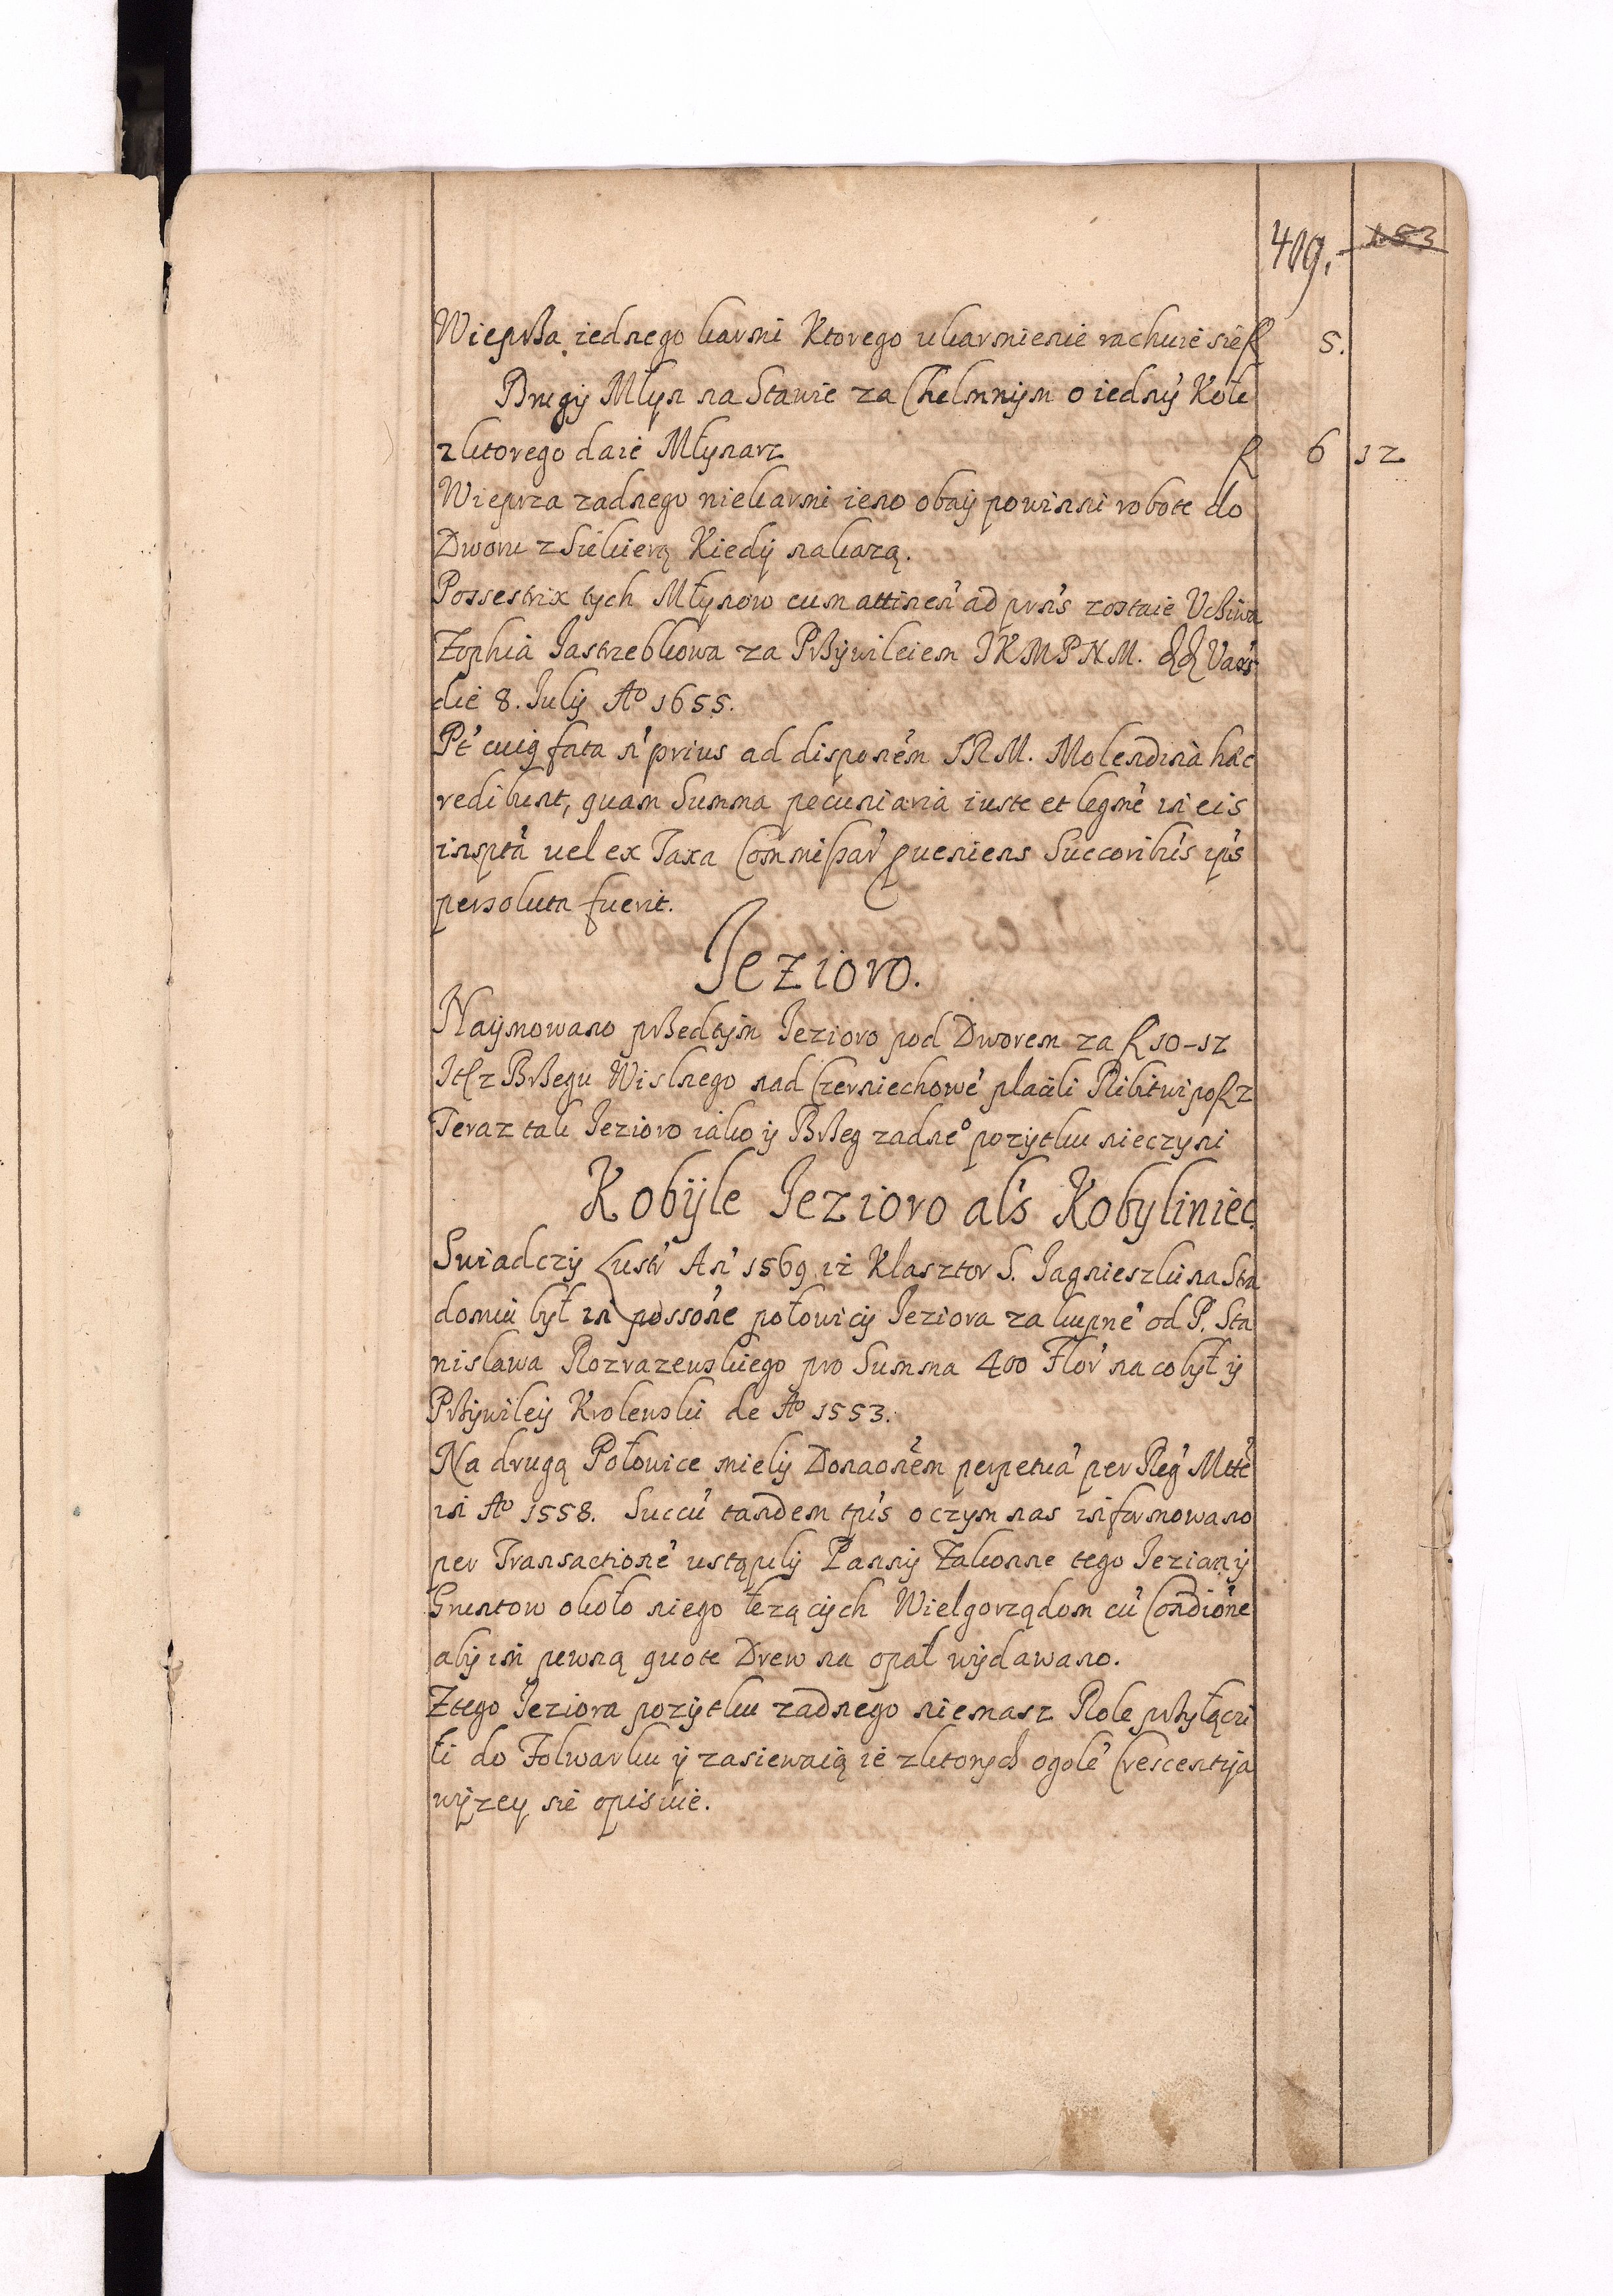 409. 183
Wieprza iednego karmi Ktorego ukarmienie rachuie sie f 5.
Drugÿ Młyn na Stawie za Chelmnÿm o iednÿ Kole
zktorego daie Młynarz f 6 12
Wieprza zadnego niekarmi ieno obaÿ powinni robote do
Dworu z Siekierą Kiedÿ nakazą.
Possestrix tych Młynow cum attinen' ad prn's zostaie Uchiwa
Zophia Jastrzebkowa za Przÿwileiem JKMPNM. dd Vars
die 8. Julÿ Aº 1655.
Pt' cuiq fata n' prius ad disponem SRM. Molendina hac
redibunt, quam Summa pecuniaria iuste et legme in eis
inspta uel ex Taxa Commissar' queniens Succoribus ip's
persoluta fuerit.
Jezioro.
Naÿmowano przedtÿm Jezioro pod Dworem za f 10-12
Jt z Brzegu Wislnego nad Czerniechowe' placili Ribitwi po f 2
Teraz tak Jezioro iako ÿ Brzeg zadneº pozÿtku nieczyni
Kobÿle Jezioro al's Kobyliniec
Swiadczÿ Lustr' An' 1569 iz Klasztor S. Jagnieszki na Stra
domiu był in possone połowicÿ Jeziora zakupne' od P. Sta
nislawa Rozrazewskiego pro Summa 400 Flor' na co był ÿ
Przÿwileÿ Krolewski de Aº 1553.
Na drugą Połowice mielÿ Donaonem perpetua' per Reg' Mtte'
in Aº 1558. Succu' tandem tpis o czym nas informowano
per Transactione' ustąpilÿ Pannÿ Zakonne tego Jezianÿ
Gruntow około niego lezącÿch Wielgorządom cu' Condione
abÿ im pewną quote Drew na opał wÿdawano.
Ztego Jeziora pozÿtku zadnego niemasz Role przyłączi
li do Folwarku ÿ zasiewaią ie zktorych ogole' Crescentÿa
wÿzeÿ sie opisuie.